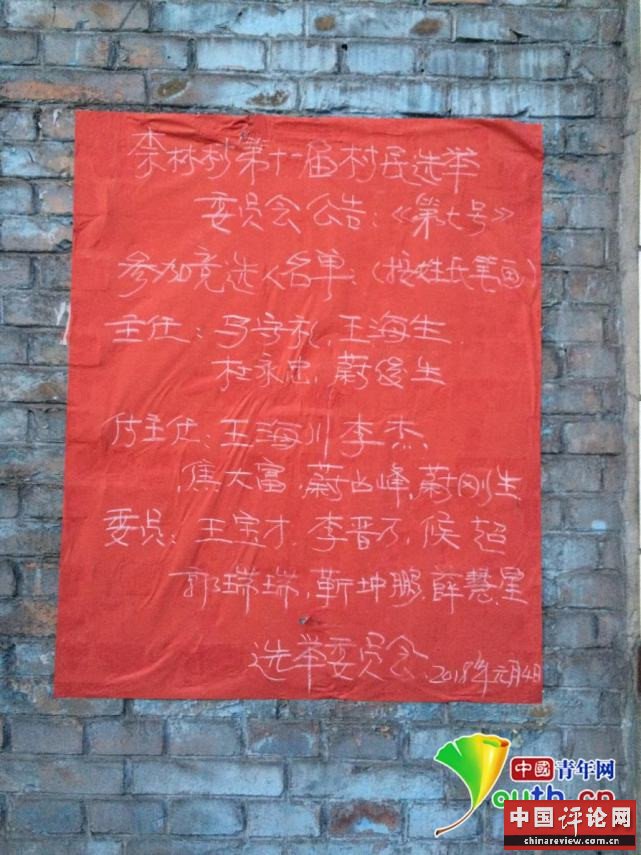 林村第十一届村民选举
委员会公告：《第七号》
参加竞选人名单：(按姓氏笔画)
主任：马守礼，王海生
杜永忠，蔚俊生
付主任：王海川李杰、
焦大富，蔚占峰，蔚刚生
委员：王宝才，李晋万，候超
郭瑞瑞，靳坤鹏，薛慧星
选举委员会 2018年元月4日
中國青年网
youth.cn
中国评论网
chinareview.com.cn